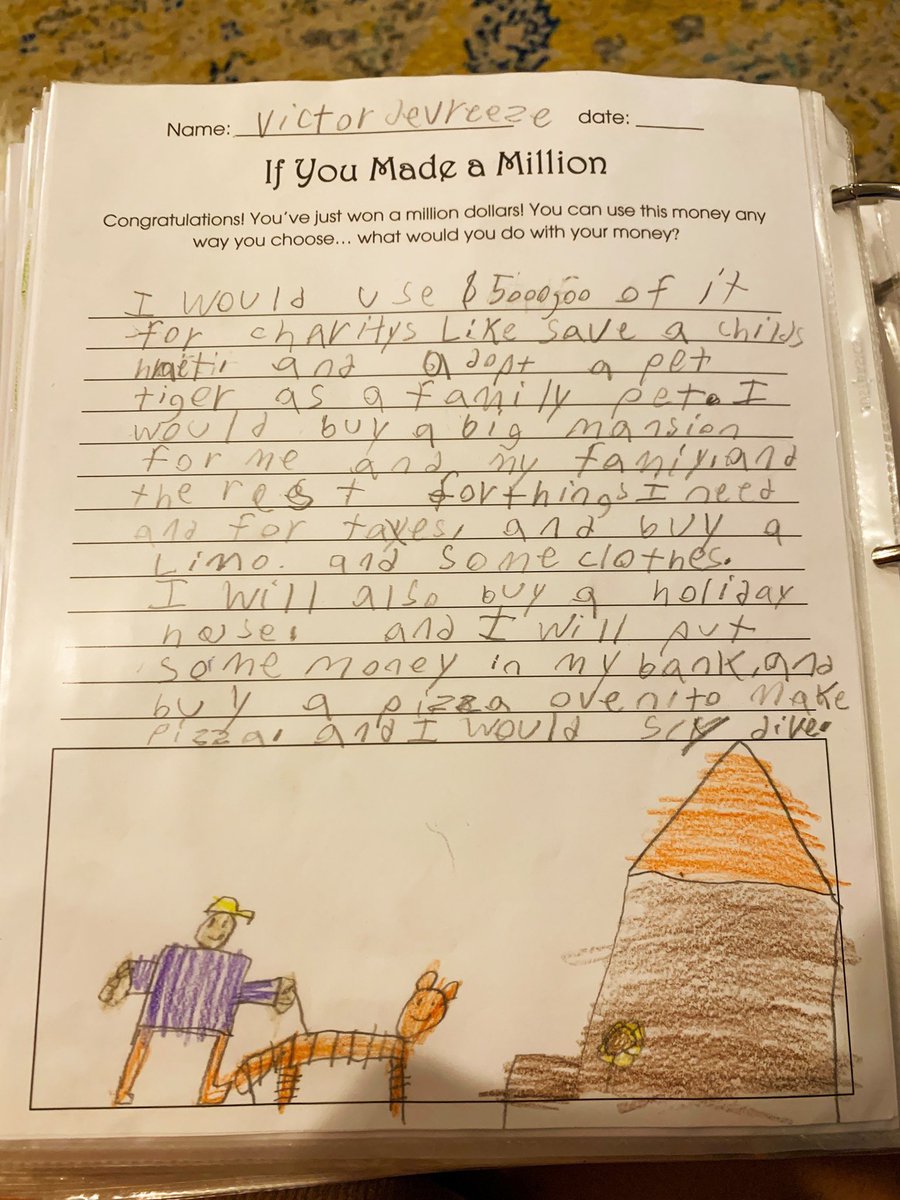 Name: Victor devreeze date:
If You Made a Million
Congratulations! You've just won a million dollars! You can use this money any
way you choose... what would you do with your money?
I would use $5000,00 of it
for charitys Like save a childs
and adopt a pet
tiger as a family pet. I
would buy a big mansion
for me and my famiy, and
the rest for things I need
and for taxes, and buy a
Limo. and some clothes.
I will also buy a holiday
hose. and I will put
some money in my bank, and
buy a pizza oven, to make
pizza. and I would sky dive.